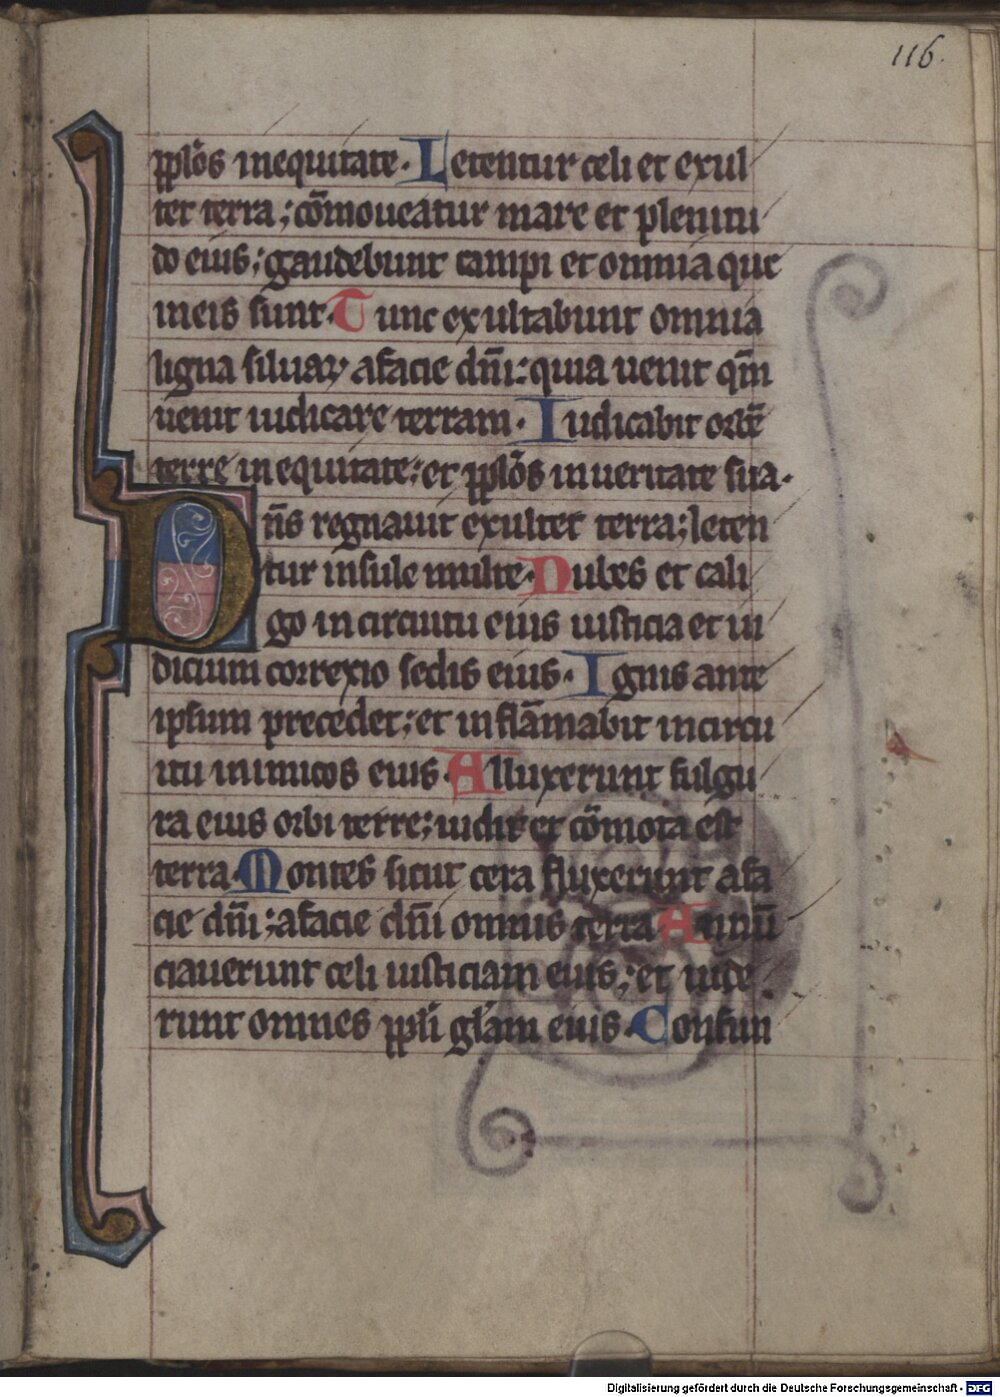 116.
pplōs in equitate. Letentur celi et exul
tet terra; cōmoueatur mare et plenitu
do eius; gaudebunt campi et omnia que
in eis sunt. Tunc exultabunt omnia
ligna siluaꝝ a facie dn̄i: quia uenit qm̄
uenit iudicare terram. Iudicabit orbē
terre in equitate: et pplōs in ueritate sua.
Dn̄s regnauit exultet terra; leten
tur insule multe. Nubes et cali
go in circuitu eius iusticia et iu
dicium correxio sedis eius. Ignis ante
ipsum precedet; et inflāmabit in circu
itu inimicos eius. Alluxerunt fulgu
ra eius orbi terre; uidit et cōmota est
terra. Montes sicut cera fluxerunt a fa
cie dn̄i; a facie dn̄i omnis terra. Annū
ciauerunt celi iusticiam eius; et uide
runt omnes ppl̄i gl̄am eius. Confun
Digitalisierung gefördert durch die Deutsche Forschungsgemeinschaft - DFG